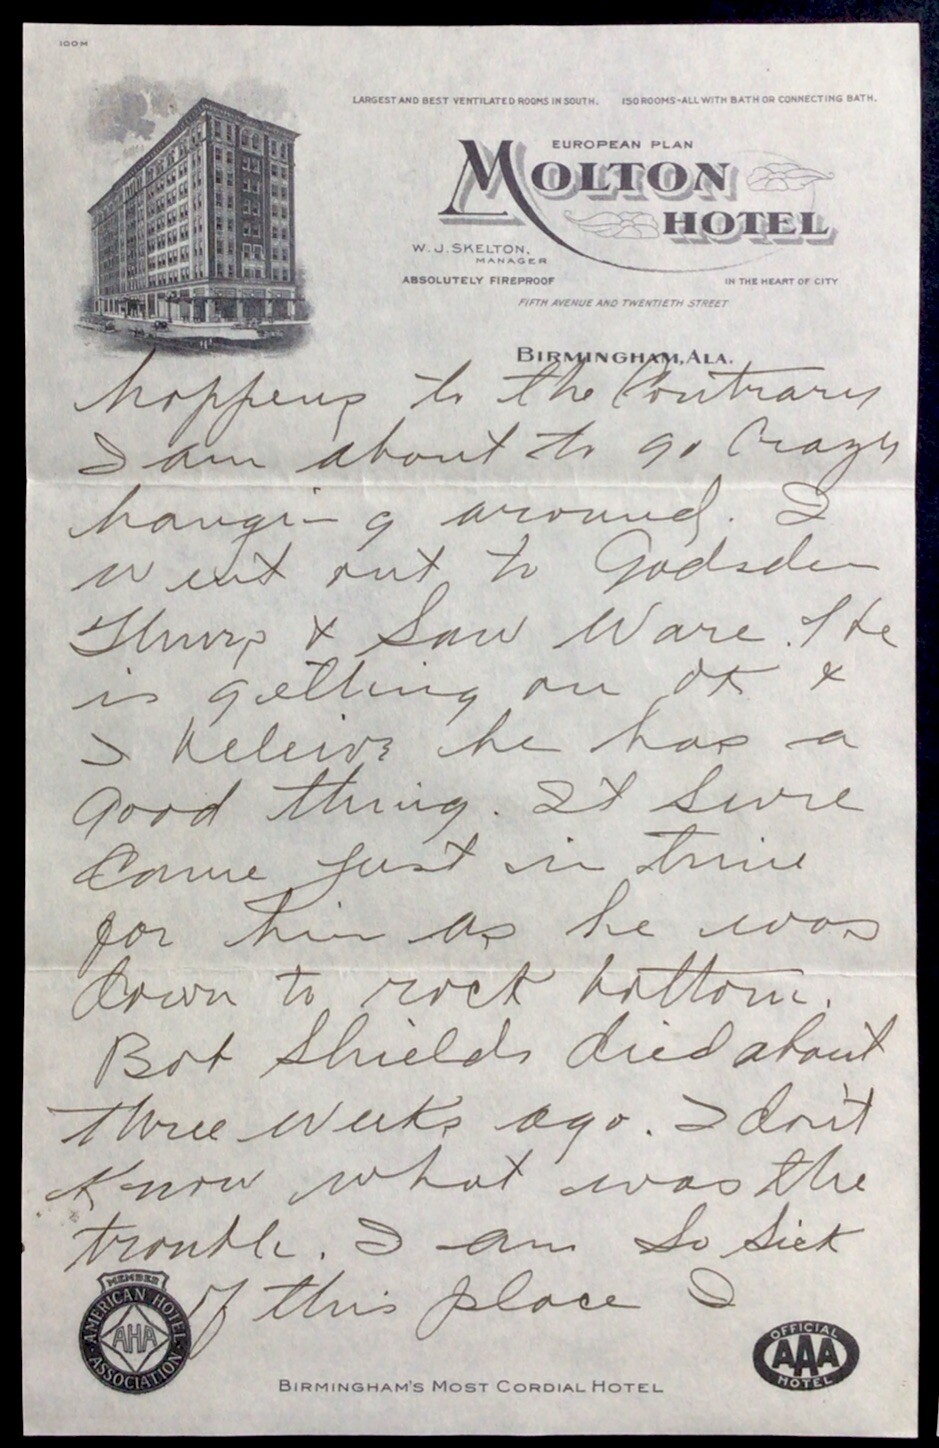 100M
LARGEST AND BEST VENTILATED ROOMS IN SOUTH. 150 ROOMS-ALL WITH BATH OR CONNECTING BATH.
EUROPEAN PLAN
MOLTON
HOTEL
W. J. SKELTON,
MANAGER
ABSOLUTELY FIREPROOF IN THE HEART OF CITY
FIFTH AVENUE AND TWENTIETH STREET
BIRMINGHAM, ALA.
happens to the Contrary
I am about to go Crazy
hanging around. I
went out to Gadsden
Thurs & Saw Ware. He
is getting on OK &
I beleive he has a
good thing. It Sure
Came just in time
for him as he was
down to rock bottom.
Bob Shields died about
three weeks ago. I don't
Know what was the
trouble. I am So Sick
of this place I
MEMBER
AMERICAN HOTEL
AHA
ASSOCIATION
OFFICIAL
AAA
HOTEL
BIRMINGHAM'S MOST CORDIAL HOTEL